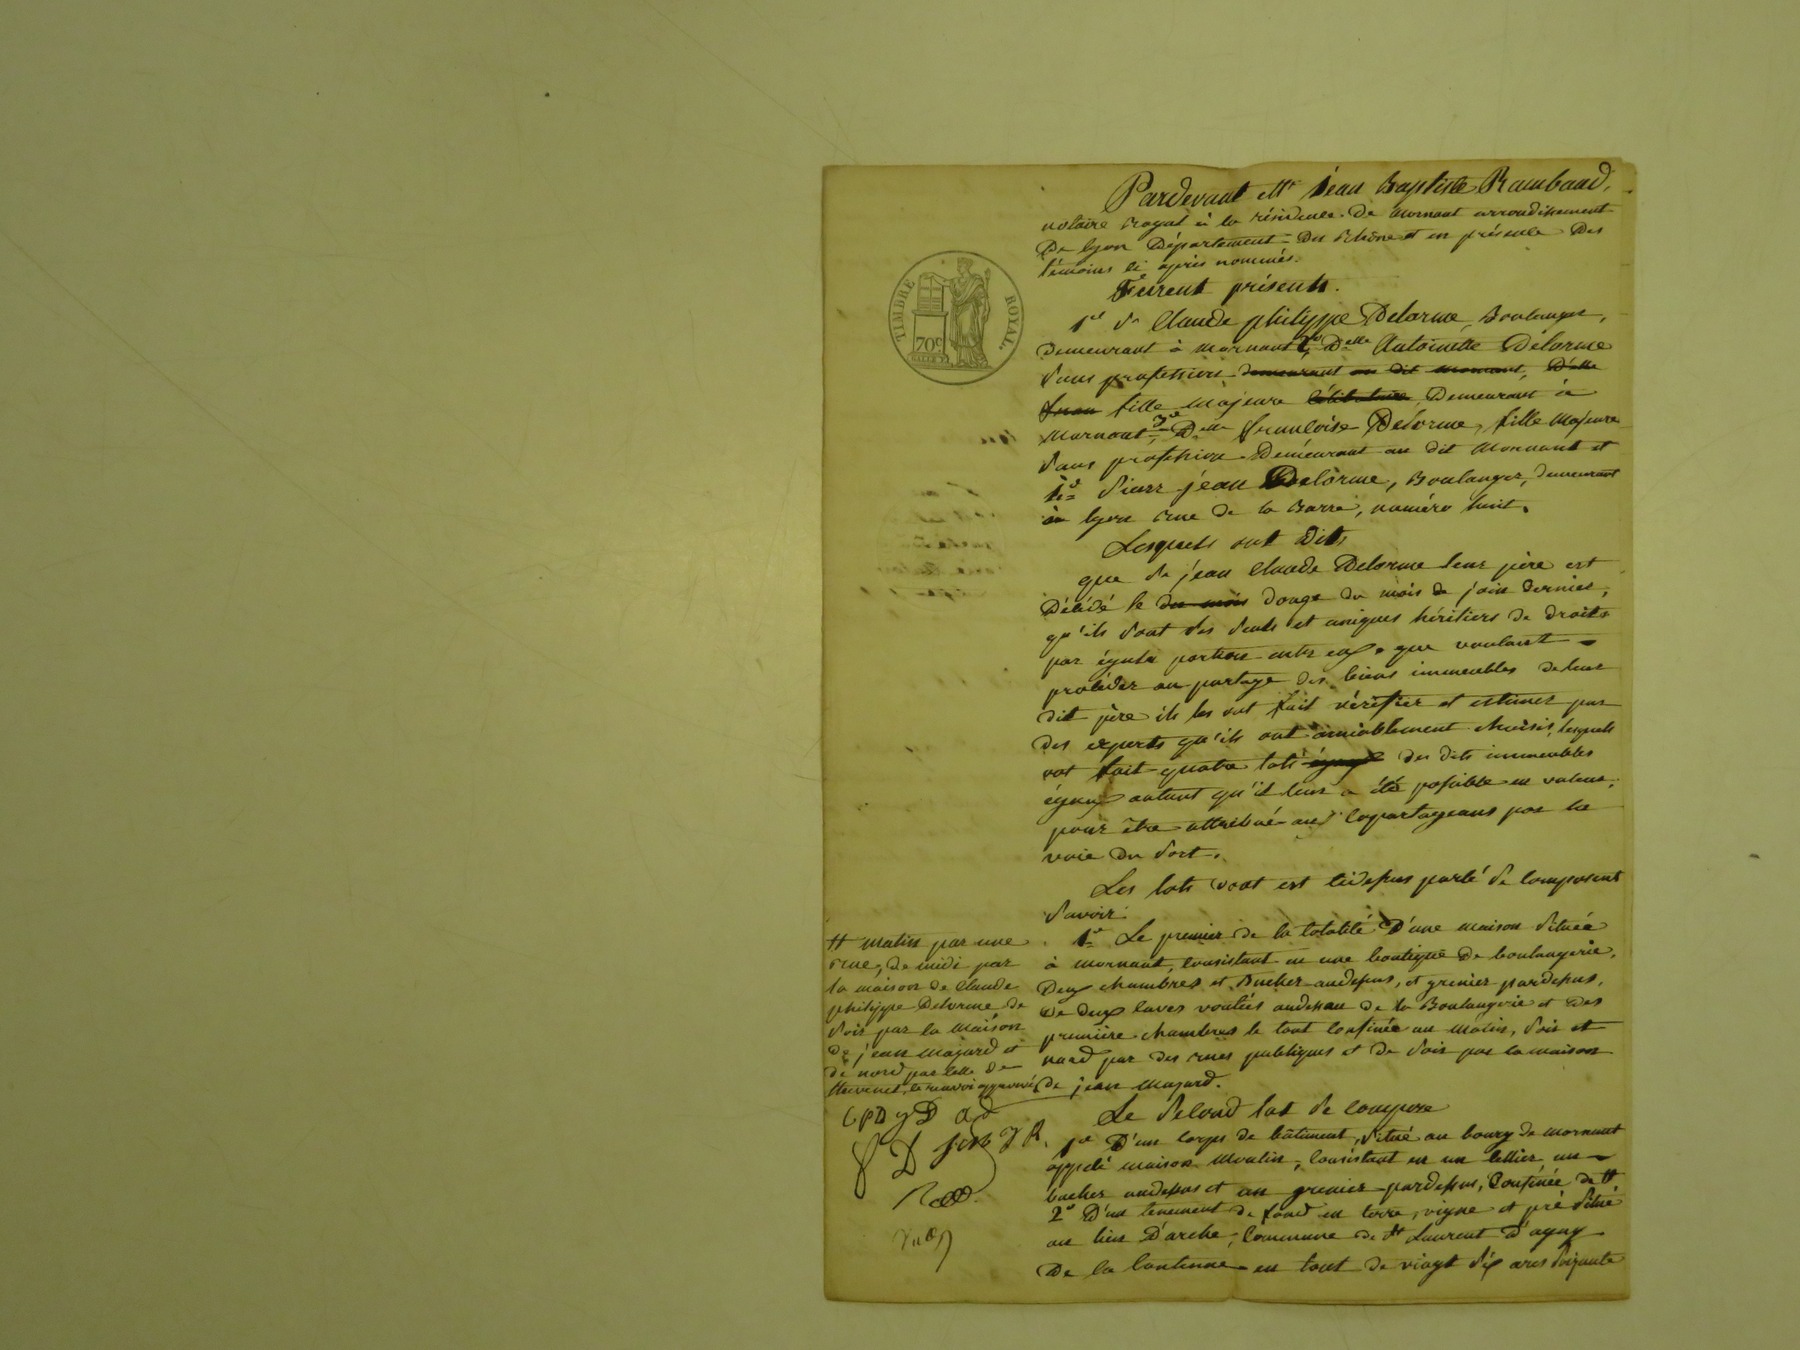 Pardevant Mtr Jéan Baptiste Rambaud,
notaire royal à la résidence de Mornant arrondissement
De lyon Département Du Rhône et en présence Des
témoins ci après nommés.
Furent présents.
1er Sr Claude philippe Delorme, Boulanger,
Demeurant à Mornant, 2e Delle Antoinette Delorme
Sans profession demeurant au dit Mornant, Delle
fille majeure célibataire, Demeurant à
Mornant, 3e Delle françoise Delorme, fille Majeure
Sans profession Demeurant au dit Mornant et
Sieur jean Delorme, Boulanger, demeurant
à lyon rue de la Barre, numéro huit.
Lesquels ont dits
que Sr jean Claude Delorme leur père est
Décédé le du mois douze du mois de juin dernier,
qu'ils sont ses seuls et uniques héritiers de droits
par égale portion entr'eux, que voulant
procéder au partage des biens immeubles de leur
dit père ils les ont fait vérifier et estimer par
des experts qu'ils ont amiablement choisis, lesquels
ont fait quatre lots égaux des dits immeubles
égaux autant qu'il leur a été possible en valeur,
pour être attribué aux copartageans par la
voie du Sort.
Les lots dont est cidessus parlé se composent
Savoir:
1er Le premier de la totalité D'une maison située
à Mornant, consistant en une boutique de boulangerie,
Deux chambres et Bucher audessus, et grenier pardessus,
de deux caves voutées audessous de la Boulangerie et des
première chambres le tout confinée au matin, soir et
nord par des rues publiques et de soir par la maison
de jean Mazard.
Le Second lot se compose
1er D'un corps de bâtiment, situé au bourg de Mornant
appelé maison Moulin, consistant en un cellier, un
bucher audessus et un grenier pardessus, Confinée de #
2e D'un tenement de fond en terre, vigne et pré situé
au lieu D'arche, Commune de St Laurent D'agny
De la contenue en tout de vingt six ares soixante
# matin par une
rue, de midi par
la maison de Claude
philippe Delorme de
soir par la maison
de jean Mazard et
de nord par celle de
Thevenet, le renvoi approuvé
TIMBRE ROYAL
70c